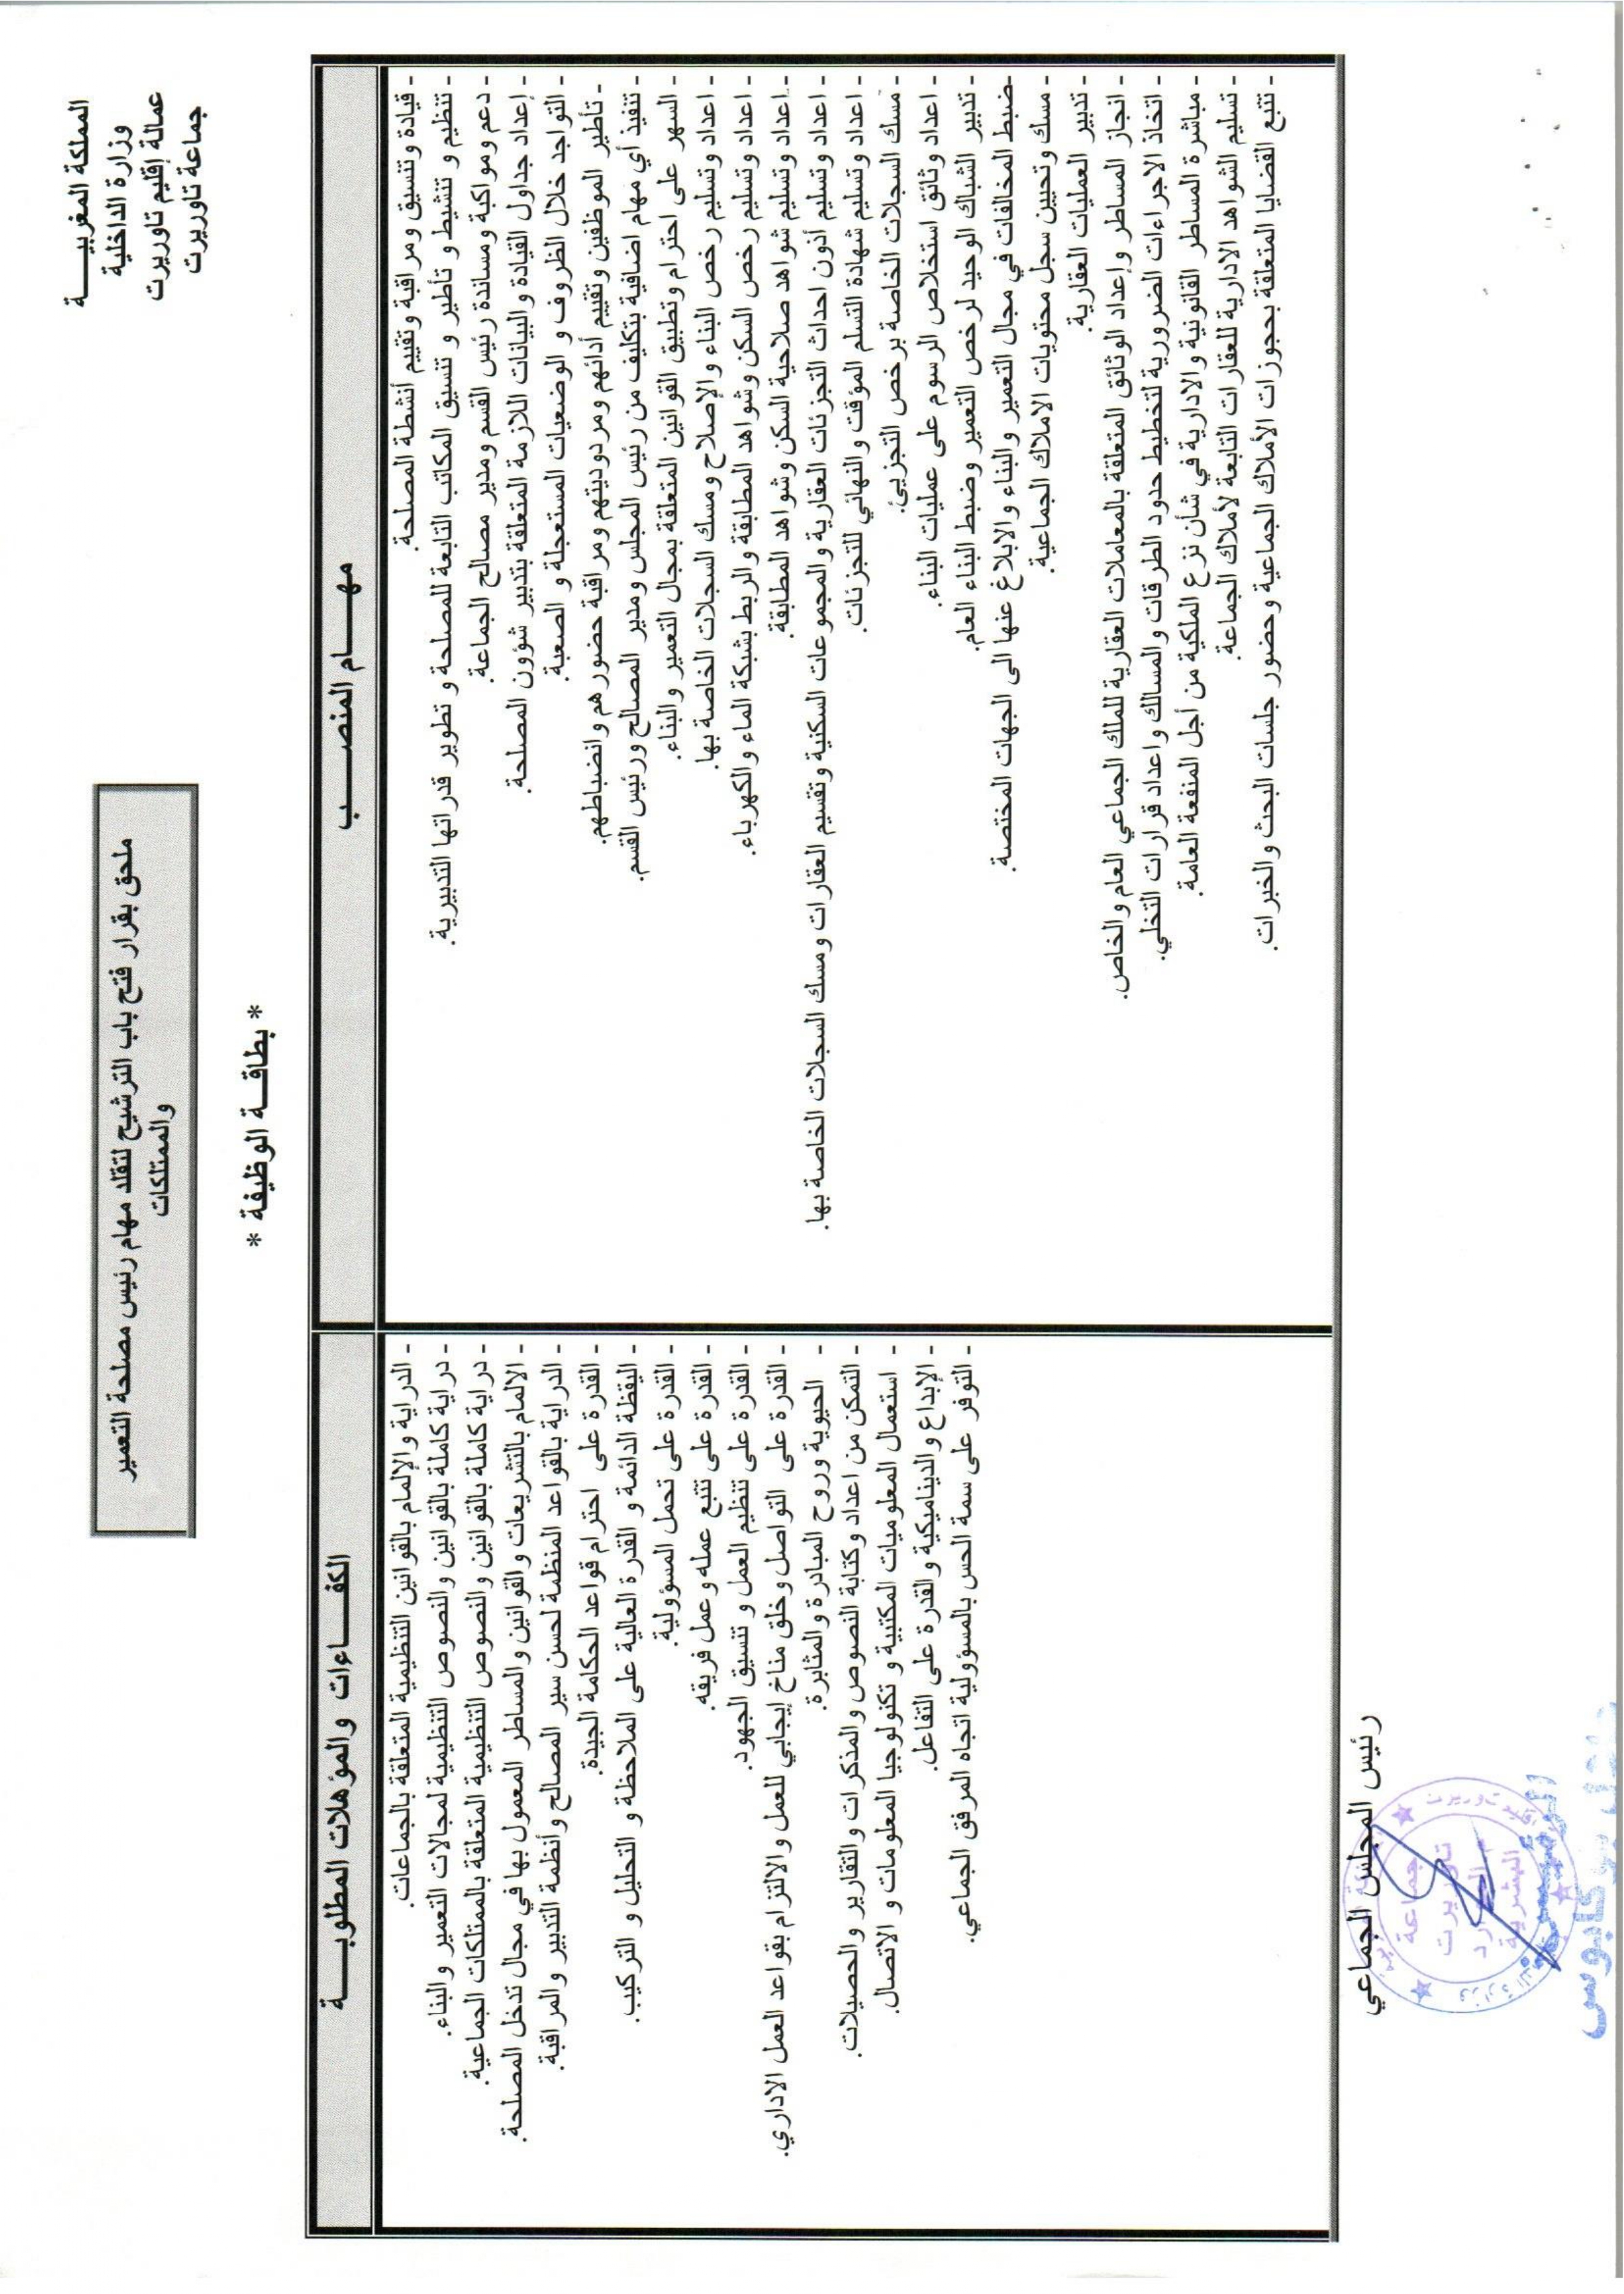 المملكة المغربيـــــة
وزارة الداخلية
عمالة إقليم تاوريرت
جماعة تاوريرت
ملحق بقرار فتح باب الترشيح لتقلد مهام رئيس مصلحة التعمير
والممتلكات
* بطاقـــة الوظيفة *
مهـــــام المنصـــــب
- قيادة وتنسيق ومراقبة وتقييم أنشطة المصلحة.
- تنظيم و تنشيط و تأطير و تنسيق المكاتب التابعة للمصلحة و تطوير قدراتها التدبيرية.
- دعم ومواكبة ومساندة رئيس القسم ومدير مصالح الجماعة.
- إعداد جداول القيادة والبيانات اللازمة المتعلقة بتدبير شؤون المصلحة.
- التواجد خلال الظروف و الوضعيات المستعجلة و الصعبة.
- تأطير الموظفين وتقييم أدائهم ومردوديتهم ومراقبة حضورهم وانضباطهم.
- تنفيذ أي مهام اضافية بتكليف من رئيس المجلس ومدير المصالح ورئيس القسم.
- السهر على احترام وتطبيق القوانين المتعلقة بمجال التعمير والبناء.
- اعداد وتسليم رخص البناء والإصلاح ومسك السجلات الخاصة بها.
- اعداد وتسليم رخص السكن وشواهد المطابقة والربط بشبكة الماء والكهرباء.
- اعداد وتسليم شواهد صلاحية السكن وشواهد المطابقة.
- اعداد وتسليم أذون احداث التجزئات العقارية والمجموعات السكنية وتقسيم العقارات ومسك السجلات الخاصة بها.
- اعداد وتسليم شهادة التسلم المؤقت والنهائي للتجزئات.
- مسك السجلات الخاصة برخص التجزيئ.
- اعداد وثائق استخلاص الرسوم على عمليات البناء.
- تدبير الشباك الوحيد لرخص التعمير وضبط البناء العام.
-ضبط المخالفات في مجال التعمير والبناء والابلاغ عنها الى الجهات المختصة.
- مسك وتحيين سجل محتويات الاملاك الجماعية.
- تدبير العمليات العقارية.
- انجاز المساطر وإعداد الوثائق المتعلقة بالمعاملات العقارية للملك الجماعي العام والخاص.
- اتخاذ الاجراءات الضرورية لتخطيط حدود الطرقات والمسالك واعداد قرارات التخلي.
- مباشرة المساطر القانونية والادارية في شأن نزع الملكية من أجل المنفعة العامة.
- تسليم الشواهد الادارية للعقارات التابعة لأملاك الجماعة.
- تتبع القضايا المتعلقة بحجوزات الأملاك الجماعية وحضور جلسات البحث والخبرات.
الكفـــــاءات والمؤهلات المطلوبـــــة
- الدراية والإلمام بالقوانين التنظيمية المتعلقة بالجماعات.
- دراية كاملة بالقوانين والنصوص التنظيمية لمجالات التعمير والبناء.
- دراية كاملة بالقوانين والنصوص التنظيمية المتعلقة بالممتلكات الجماعية.
- الالمام بالتشريعات والقوانين والمساطر المعمول بها في مجال تدخل المصلحة.
- الدراية بالقواعد المنظمة لحسن سير المصالح وأنظمة التدبير والمراقبة.
- القدرة على احترام قواعد الحكامة الجيدة.
- اليقظة الدائمة و القدرة العالية على الملاحظة و التحليل و التركيب.
- القدرة على تحمل المسؤولية.
- القدرة على تتبع عمله وعمل فريقه.
- القدرة على تنظيم العمل و تنسيق الجهود.
- القدرة على التواصل وخلق مناخ إيجابي للعمل والالتزام بقواعد العمل الاداري.
- الحيوية وروح المبادرة والمثابرة.
- التمكن من اعداد وكتابة النصوص والمذكرات والتقارير والحصيلات.
- استعمال المعلوميات المكتبية و تكنولوجيا المعلومات و الاتصال.
- الإبداع والديناميكية والقدرة على التفاعل.
- التوفر على سمة الحس بالمسؤولية اتجاه المرفق الجماعي.
رئيس المجلس الجماعي
جماعة
تاوريرت
الموارد
البشرية